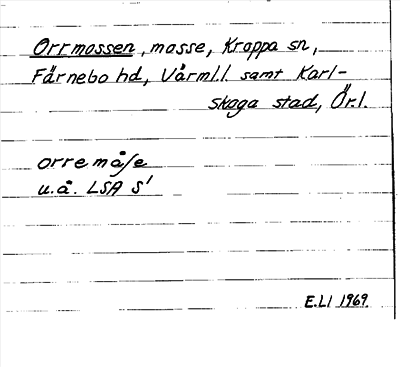 Orrmossen, mosse, Kroppa sn,
Färnebo hd, Värml.l. samt Karl-
skoga stad, Ör.l.
orremåſe
u.å. LSA S'
E.LI 1969.